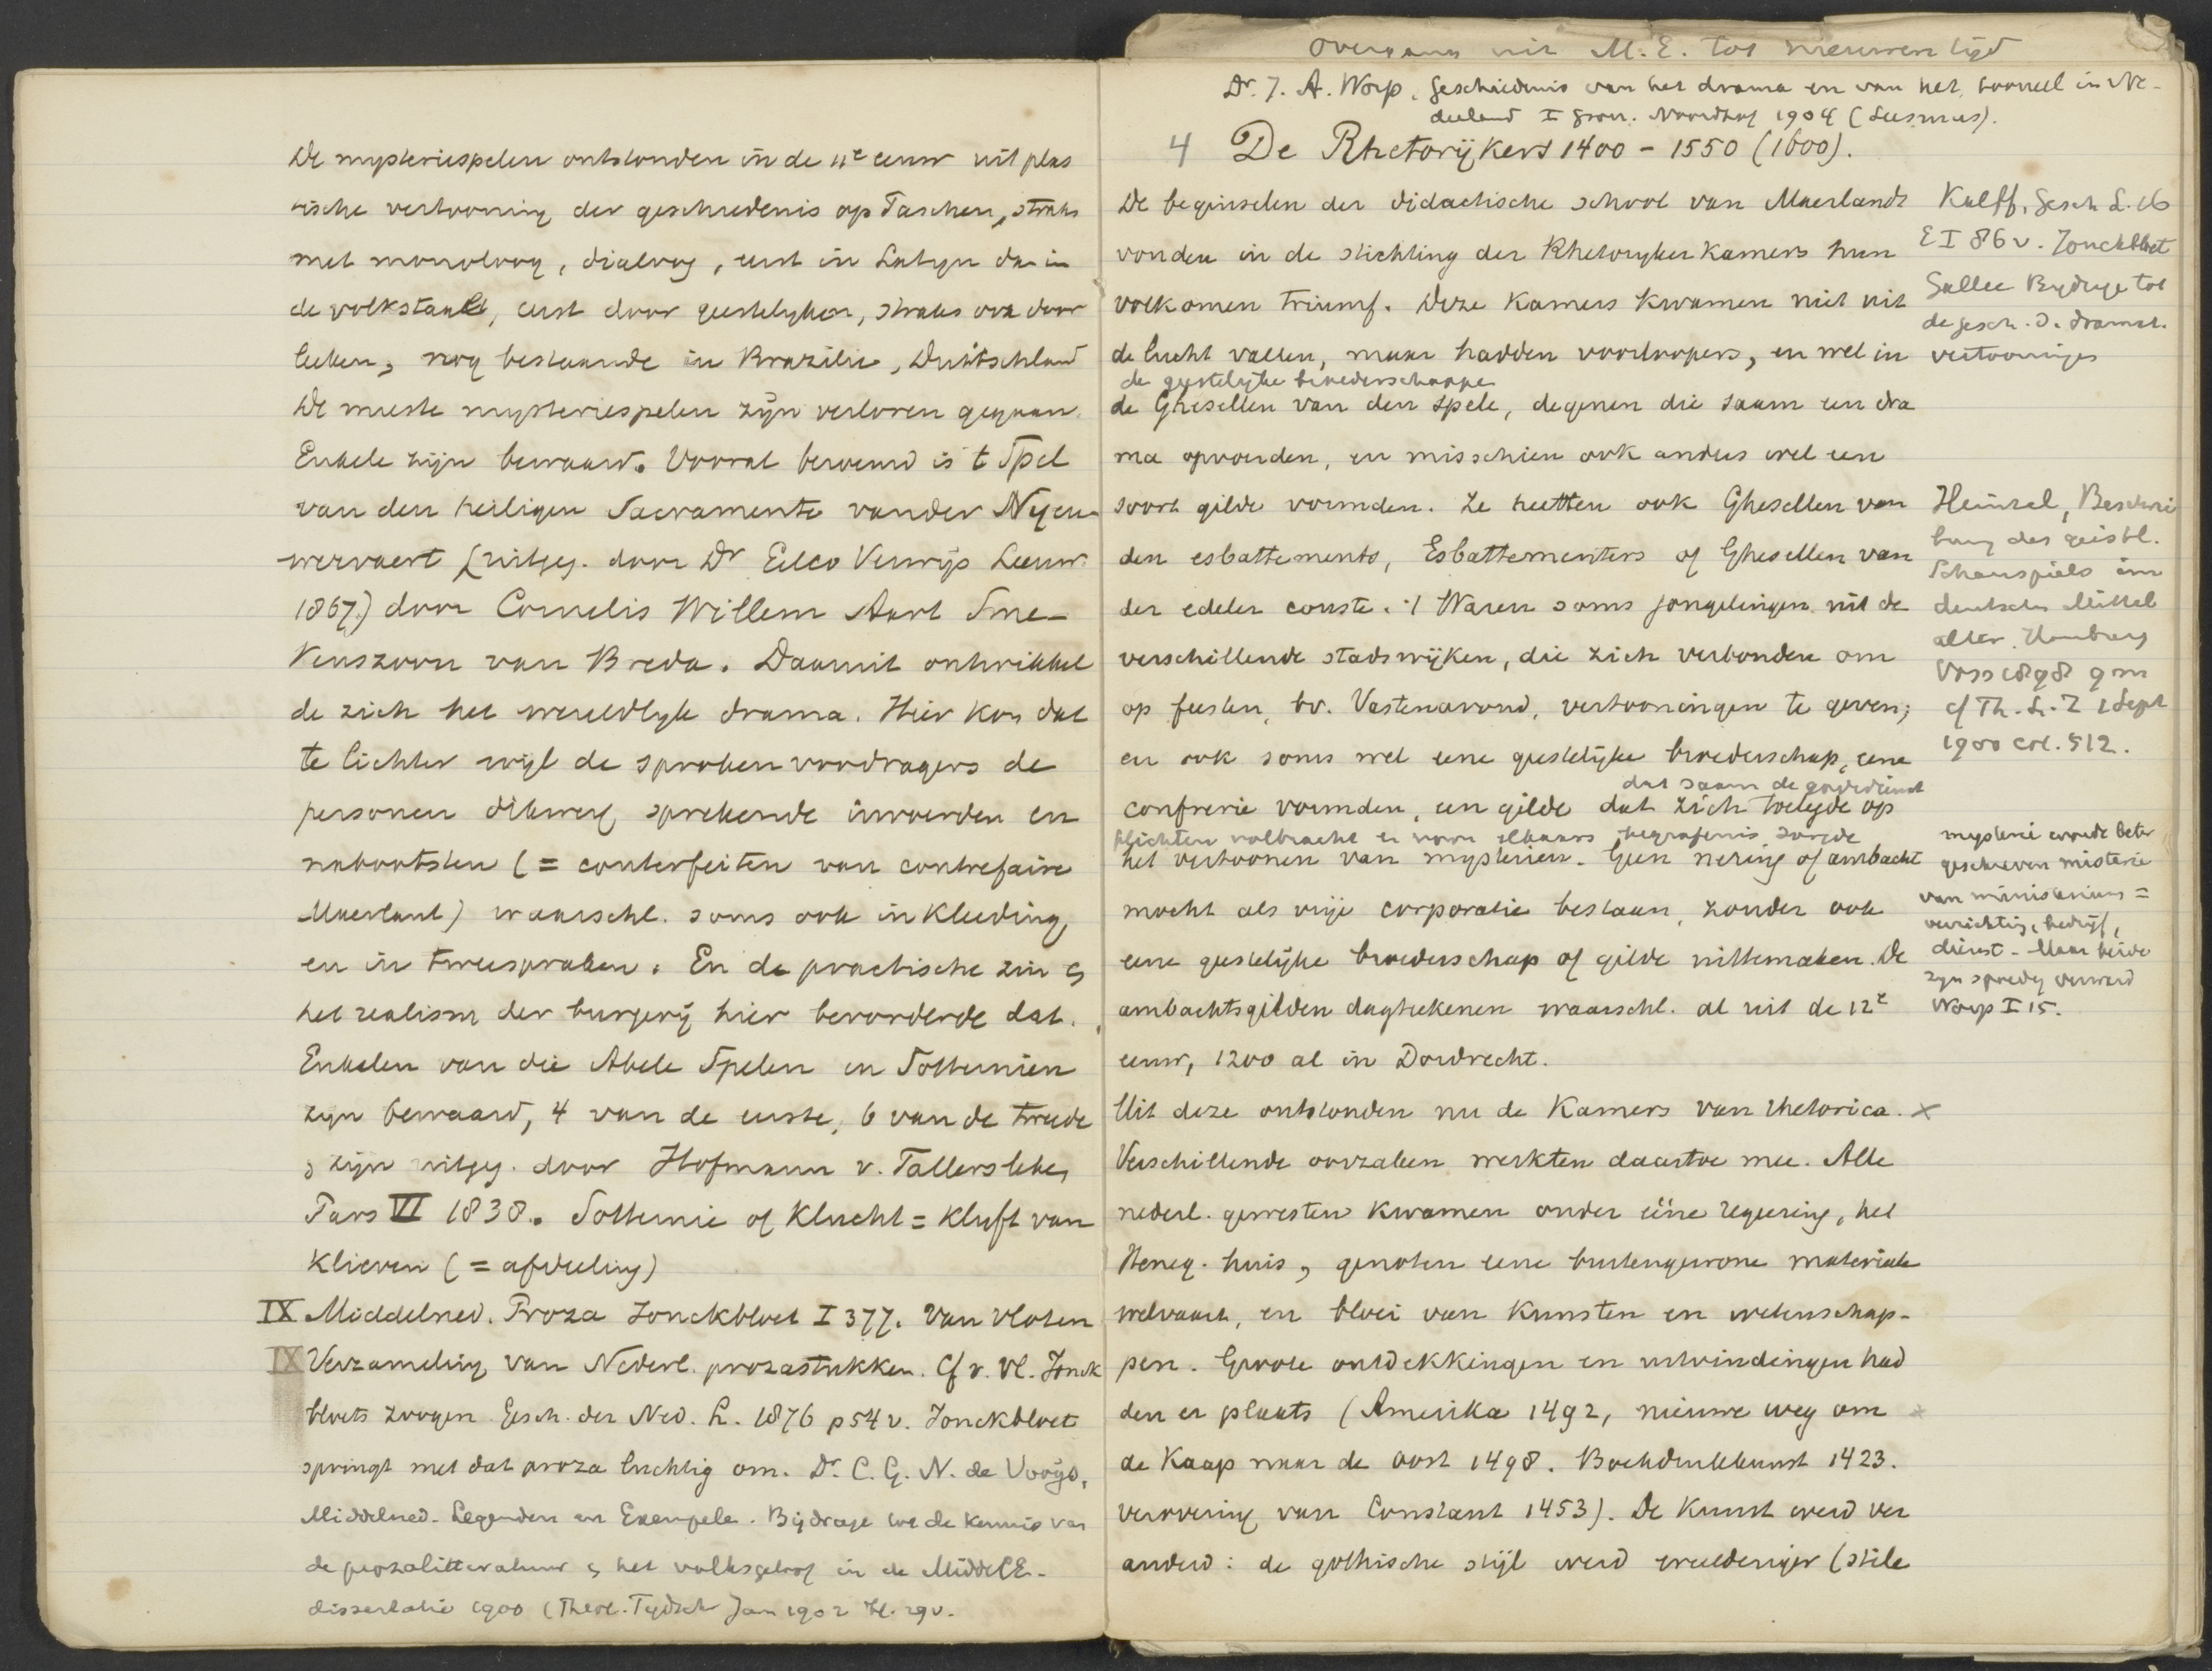 De mysteriespelen ontstonden in de 11e eeuw uit plas
tische vertooning der geschiedenis op Paschen, straks
met monoloog, dialoog, eerst in Latyn dan in
de volkstaal, eerst door geestelyken, straks ook door
leeken, nog bestaande in Brazilie, Duitschland
De meeste mysteriespelen zyn verloren gegaan.
Enkele zijn bewaard. Vooral beroemd is 't Spel
van den heiligen Sacramente vander Nyeu-
wervaert (uitgeg. door Dr Eelco Verwijs Leeuw.
1867.) door Cornelis Willem Aart Sme-
kenszoon van Breda. Daaruit ontwikkel
de zich het wereldlyk drama. Hier kon dat
te lichter wyl de sprokenvoordragers de
personen dikwerf sprekende invoerden en
nabootsten (= conterfeiten van contrefaire
Maerlant) waarschl. soms ook in kleeding
en in tweespraken. En de practische zin &
het realism der burgerij hier bevorderde dat.
Enkelen van die Abele Spelen en Sotternien
zyn bewaard, 4 van de eerste, 6 van de tweede
& zijn uitgeg. door Hofmann v. Fallersleben
Pars VI 1838. Sotternie of Klucht = kluft van
klieven (= afdeeling)
IX Middelned. Proza Jonckbloet I 377. Van Vloten
IX Verzameling van Nederl. prozastukken. Cf v. Vl. Jonck
bloets zoogen. Gesch. der Ned. L. 1876 p 54 v. Jonckbloet
springt met dat proza luchtig om. Dr. C. G. N. de Vooys,
Middelned. Legenden en Exempele. Bijdrage tot de kennis van
de prozalitteratuur & het volksgeloof in de MiddelE.
dissertatie 1900 (Theol. Tydschr Jan 1902 bl. 29 v.
overgang uit M.E. tot nieuwen tijd
Dr. J. A. Worp, Geschiedenis van het drama en van het tooneel in Ne-
derland I Gron. Noordhof 1904 (Leesmus).
4 De Rhetorijkers 1400 - 1550 (1600).
De beginselen der didactische school van Maerlant
vonden in de stichting der Rhetoryker Kamers hun
volkomen triumf. Deze Kamers kwamen niet uit
de lucht vallen, maar hadden voorloopers, en wel in
de geestelyke broederschappen
de Ghesellen van den spele, degenen die saam een dra
ma opvoerden, en misschien ook anders wel een
soort gilde vormden. Ze heetten ook Ghesellen van
den esbattemente, Esbattementers of Ghesellen van
der edeler conste. 't Waren soms jongelingen uit de
verschillende stadswijken, die zich verbonden om
op feesten, bv. Vastenavond, vertooningen te geven;
en ook soms wel eene geestelijke broederschap, eene
dat saam de godsdienst
confrerie vormden, een gilde dat zich toelegde op
plichten volbracht en voor elkaars begrafenis zorgde
het vertoonen van mysterien. Geen nering of ambacht
mocht als vrije corporatie bestaan, zonder ook
eene geestelijke broederschap of gilde uittemaken. De
ambachtsgilden dagteekenen waarschl. al uit de 12e
eeuw, 1200 al in Dordrecht.
Uit deze ontstonden nu de Kamers van rhetorica. x
Verschillende oorzaken werkten daartoe mee. Alle
nederl. gewesten kwamen onder ééne regeering, het
Heneg. huis, genoten eene buitengewone materieele
welvaart, en bloei van kunsten en wetenschap-
pen. Groote ontdekkingen en uitvindingen had
den er plaats (Amerika 1492, nieuwe weg om
de Kaap naar de oost 1498. Boekdrukkunst 1423.
verovering van Constant 1453). De kunst werd ver
anderd: de gothische stijl werd weelderiger (stile
Kalff, Gesch L. 16
E I 86 v. Jonckbloet
Gallee Bydrage tot
de gesch. d. dramat.
vertooninges
Heinzel, Beschrei
bung des geistl.
Schauspiels im
deutschen Mittel
alter. Hamburg
Voss 1898 9 m
cf Th. L. Z 1 Sept
1900 col. 512.
mysterie worde beter
geschreven misterie
van ministerium =
verrichting, bedrijf,
dienst - Maar beide
zyn spoedig verward
Worp I 15.